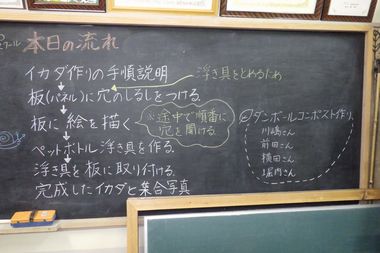 本日の流れ
イカダ作りの手順説明
浮き具をとめるため
板(パネル)に穴のしるしをつける。
板に絵を描く
※途中で順番に
穴を開ける。
ペットボトル浮き具を作る。
浮き具を板に取り付ける。
完成したイカダと集合写真
ダンボールコンポスト作り。
川嶋さん
前田さん
横田さん
堀内さん